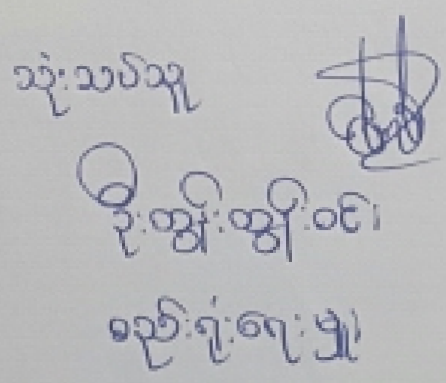 သုံးသပ်သူ
ဦးထွန်းထွန်းဝင်း
စည်းရုံးရေးမှူး